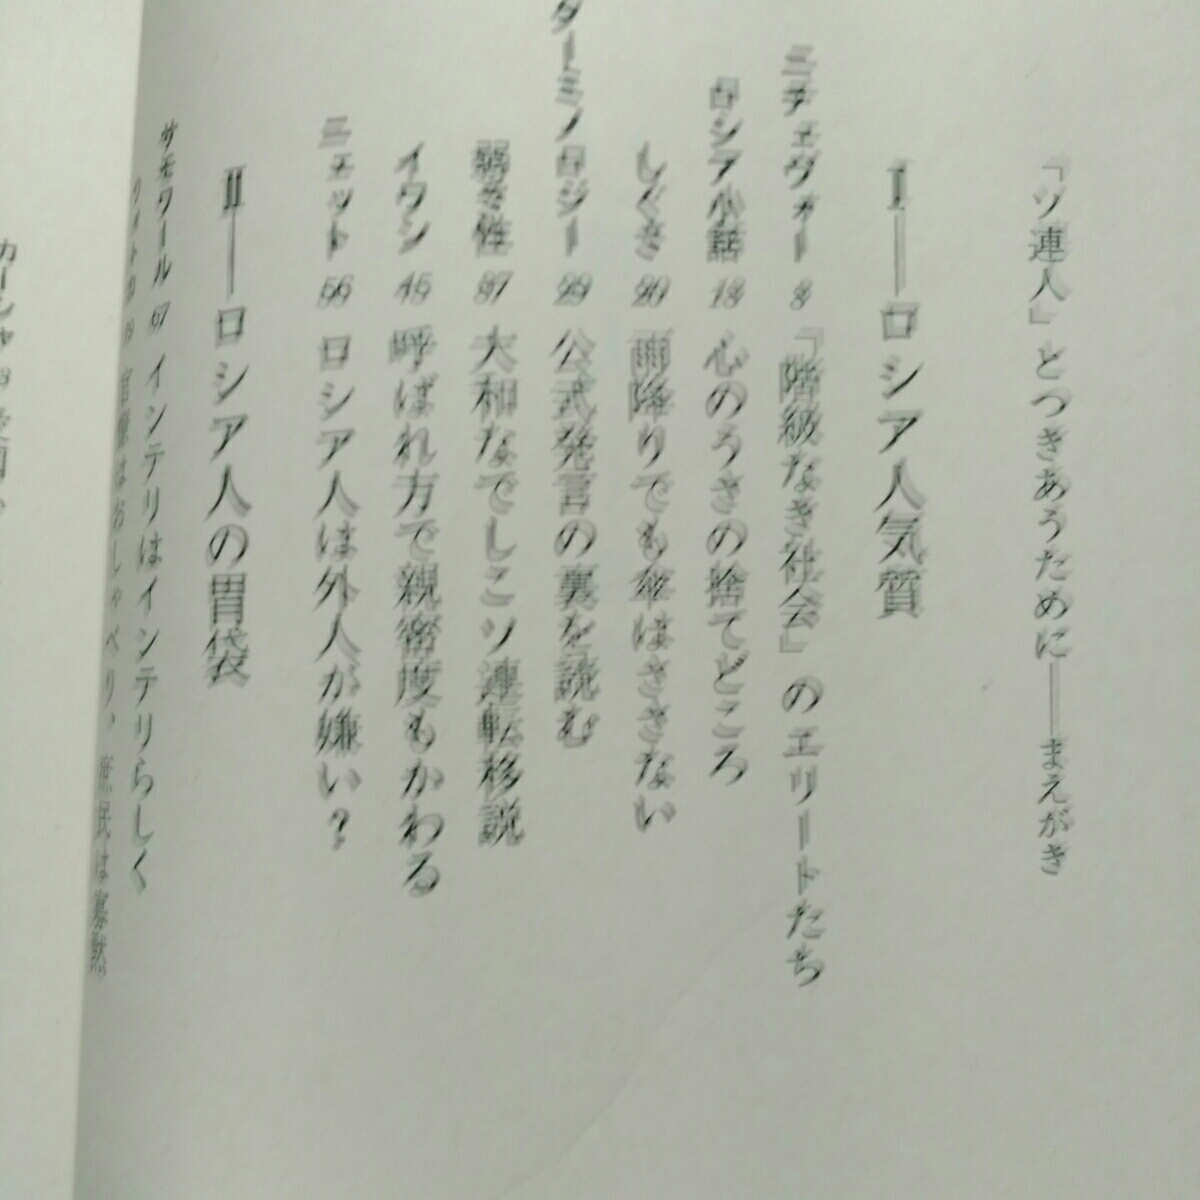 「ソ連人」とつきあうために——まえがき
Ⅰ——ロシア人気質
ニチェヴォー 8 『階級なき社会』のエリートたち
ロシア小話 13 心のうさの捨てどころ
しぐさ 20 雨降りでも傘はささない
ターミノロジー 29 公式発言の裏を読む
弱き性 37 大和なでしこソ連転移説
イワン 45 呼ばれ方で親密度もかわる
ニェット 56 ロシア人は外人が嫌い？
Ⅱ——ロシア人の胃袋
サモワール 67 インテリはインテリらしく
官僚はおしゃべり，庶民は寡黙
カーシャ